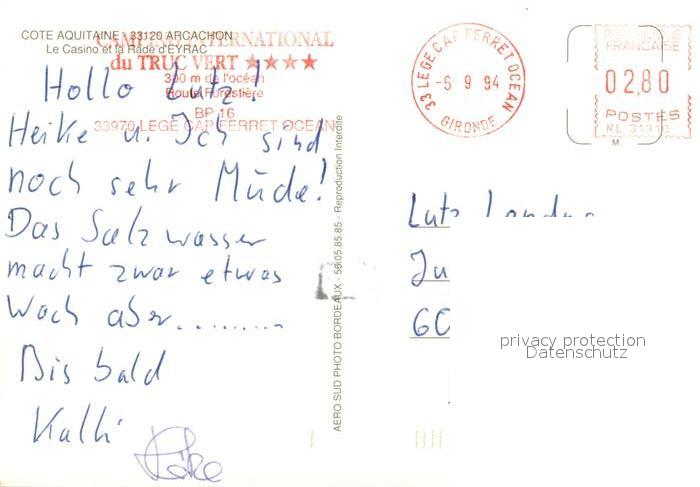 COTE AQUITAINE - 33120 ARCACHON
Le Casino et la Rade d'EYRAC
CAMPING INTERNATIONAL
du TRUC VERT ★★★★
300 m de l'océan
Route Forestière
BP 16
33970 LEGE CAP FERRET OCEAN
Hallo Lutz!
Heike u. Ich sind
noch sehr Müde!
Das Salzwasser
macht zwar etwas
wach aber..........
Bis bald
Kalli
Heike
AERO SUD PHOTO BORDEAUX - 56.05.85.85 - Reproduction Interdite
33 LEGE CAP FERRET OCEAN
-6 9 94
GIRONDE
REPUBLIQUE
FRANCAISE
02,80
POSTES
M
Lutz
Ju
60
privacy protection
Datenschutz